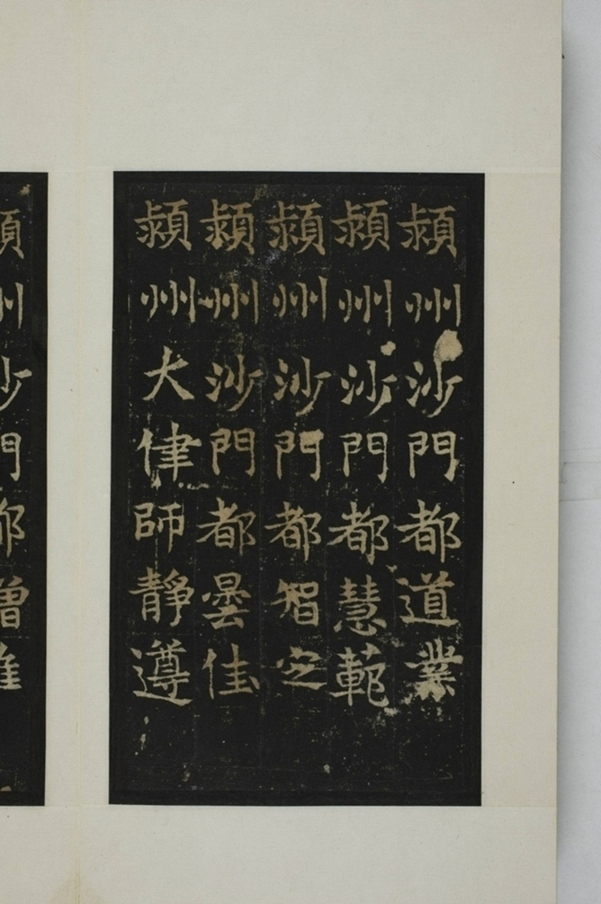 潁州沙門都道業
潁州沙門都慧範
潁州沙門都智定
潁州沙門都曇佳
潁州大律師靜遵
州沙門都僧